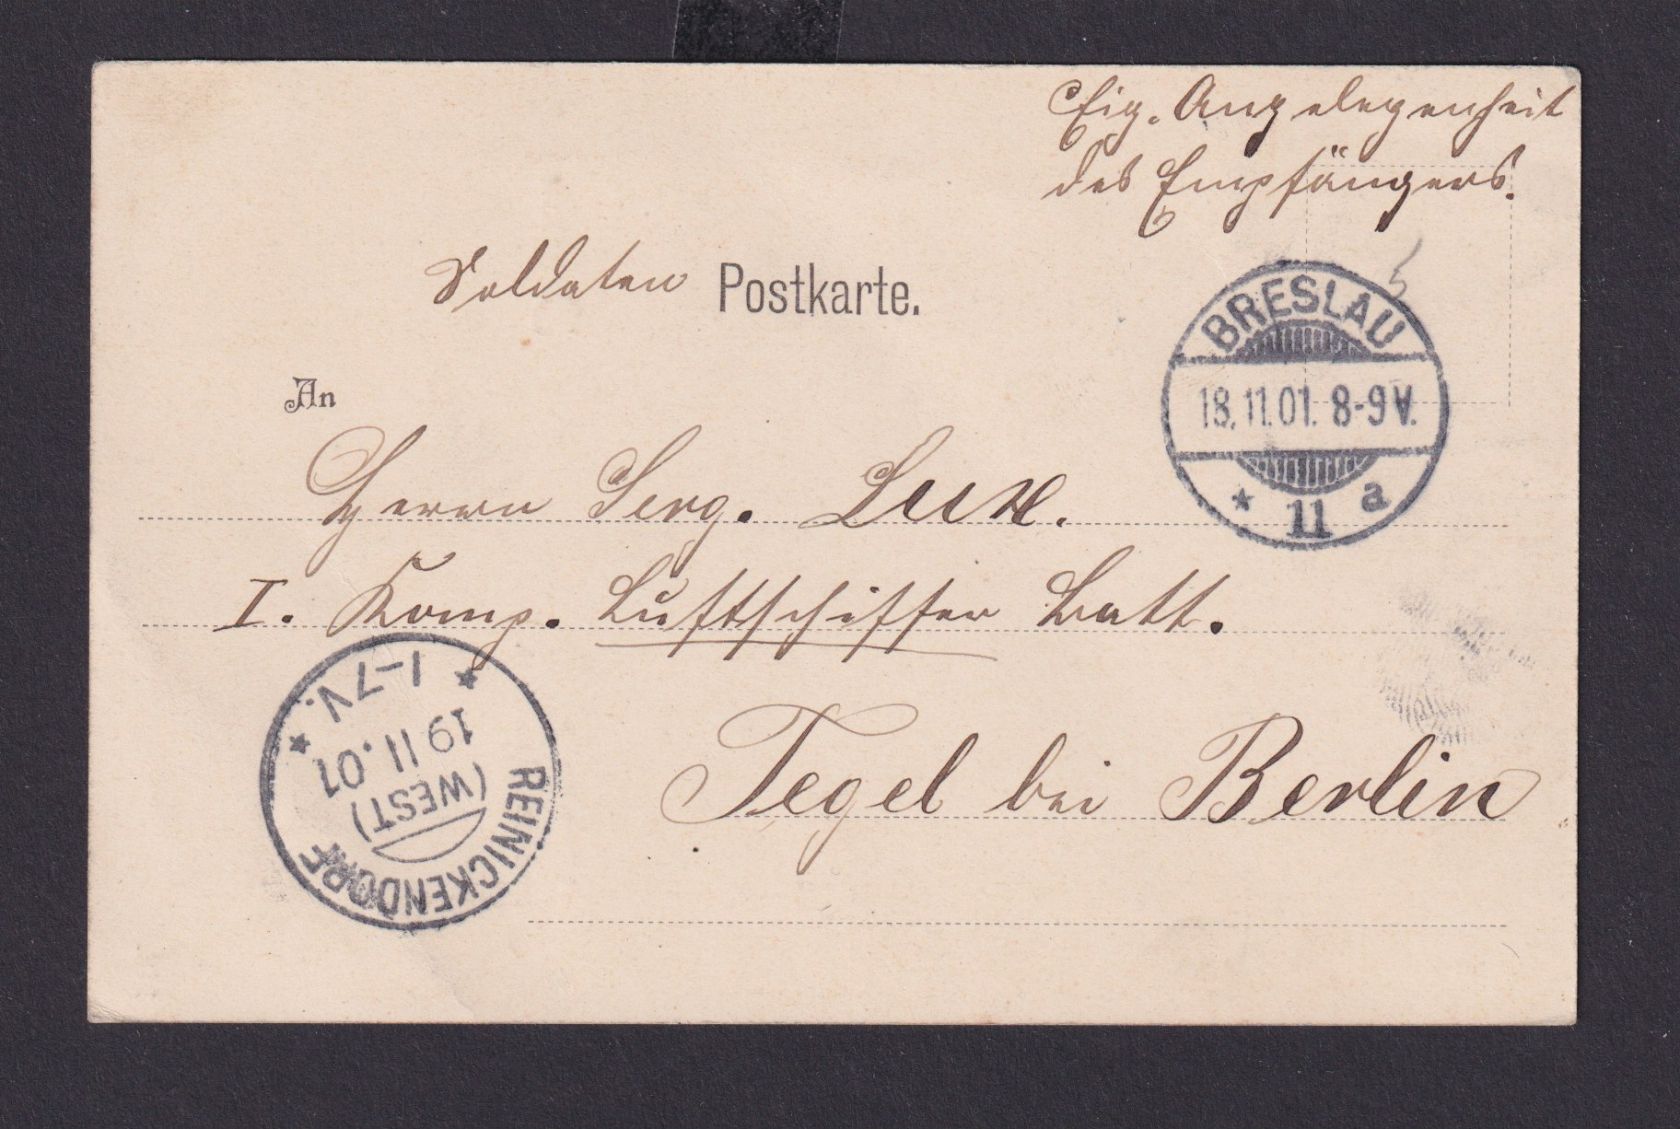 Eig. Angelegenheit
des Empfängers.
Soldaten Postkarte.
BRESLAU
18.11.01. 8-9V.
* 11 a
An
Herrn Serg. Lux.
I. Komp. Luftschiffer Batt.
Tegel bei Berlin
REINICKENDORF
(WEST)
19 11.01
* 1-7V. *